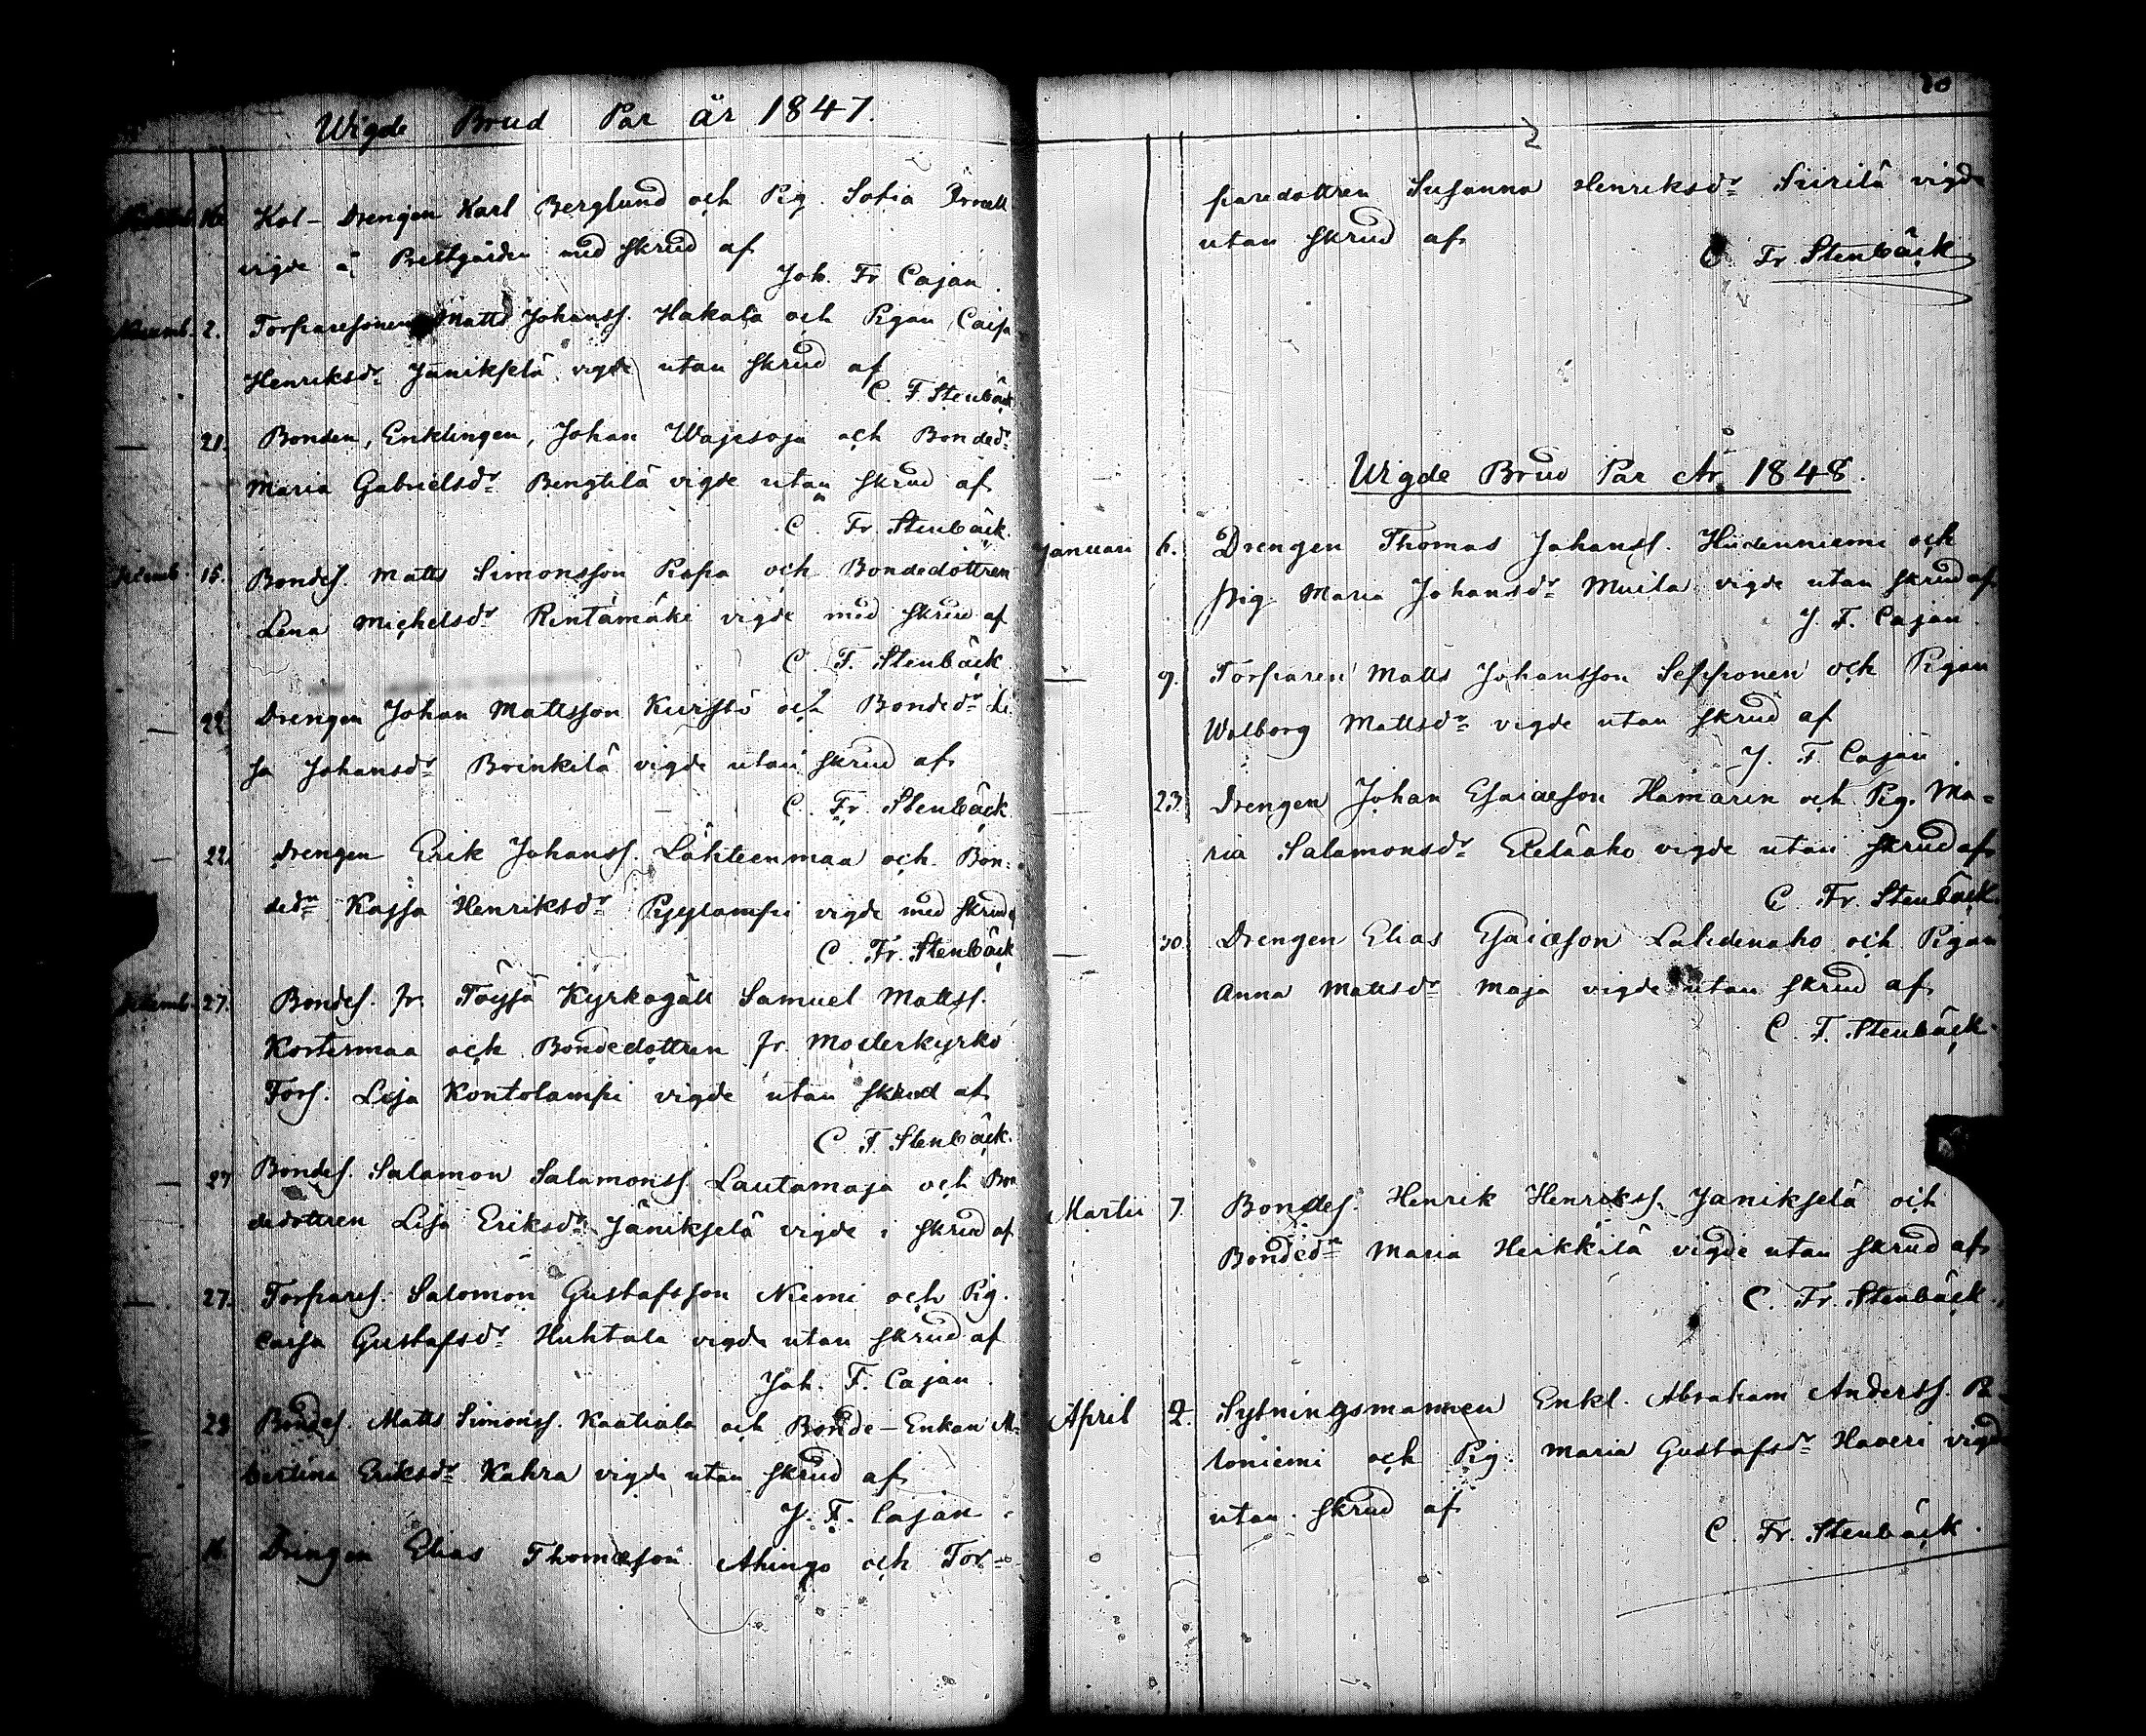 Wigde Brud Par år 1847.
16. Kol-Drengen Karl Berglund och Pig. Sofia
vigde å Prestgården med skrud af
Joh. Fr Cajan.
Novemb. 2. Torparesonen Matts Johanss. Hakala och Pigan Caisa
Henriksdr Jänikselä vigde utan skrud af
C. F. Stenbäck
— 21. Bonden, Enklingen, Johan Wajesoja och Bondedr
Maria Gabrielsdr Bengtilä vigde utan skrud af
C. Fr. Stenbäck.
Decemb. 15. Bondes. Matts Simonsson Pispa och Bondedottren
Lena Michelsdr Rintamäki vigde med skrud af
C. F. Stenbäck
— 22. Drengen Johan Mattsson Kuristo och Bondedr Li
sa Johansdr Brinkilä vigde utan skrud af
C. Fr. Stenbäck
— 22. Drengen Erik Johanss. Lähteenmaa och Bon=
dedr Kajsa Henriksdr Pyylampi vigde med skrud
C. Fr. Stenbäck
Decemb. 27. Bondes. fr. Töysä Kyrkogäll Samuel Matss.
Kortesmaa och Bondedottren fr. Moderkyrko
Förs. Lisa Kontolampi vigde utan skrud af
C. F. Stenbäck.
— 27 Bondes. Salamon Salamonss. Lautamaja och Bon
dedottren Lisa Eriksdr Jänikselä vigde i skrud af
— 27. Torpares. Salomon Gustafsson Niemi och Pig.
Caisa Gustafsdr Huhtala vigde utan skrud af
Joh. F. Cajan.
28 Bondes. Matts Simonss. Kaatiala och Bonde-Enkan Al=
bertina Eriksdr Kahra vigde utan skrud af
J. F. Cajan.
Drengen Elias Thomasson Ahingo och Tor=
paredottren Susanna Henriksdr Siirilä vigde
utan skrud af
C Fr. Stenbäck
Wigde Brud Par År 1848.
Januari 6. Drengen Thomas Johanss. Hiidenniemi och
pig Maria Johansdr Muila vigde utan skrud af
J. F. Cajan.
— 9. Torparen Matts Johansson Sepponen och Pigan
Walborg Mattsdr vigde utan skrud af
J. F. Cajan.
— 23. Drengen Johan Esaiæson Hamarin och Pig. Ma=
ria Salamonsdr Eteläaho vigde utan skrud af
C. Fr. Stenbäck.
— 30. Drengen Elias Esaiæson Lahdenaho och Pigan
Anna Mattsdr Maja vigde utan skrud af
C. F. Stenbäck.
Martii 7 Bondes. Henrik Henrikss. Janikselä och
Bondedr Maria Heikkilä vigde utan skrud af
C. Fr. Stenbäck.
April 2. Sytningsmannen Enkl. Abraham Anderss. Pe=
loniemi och Pig. Maria Gustafsdr Haveri vigde
utan skrud af
C. Fr. Stenbäck.